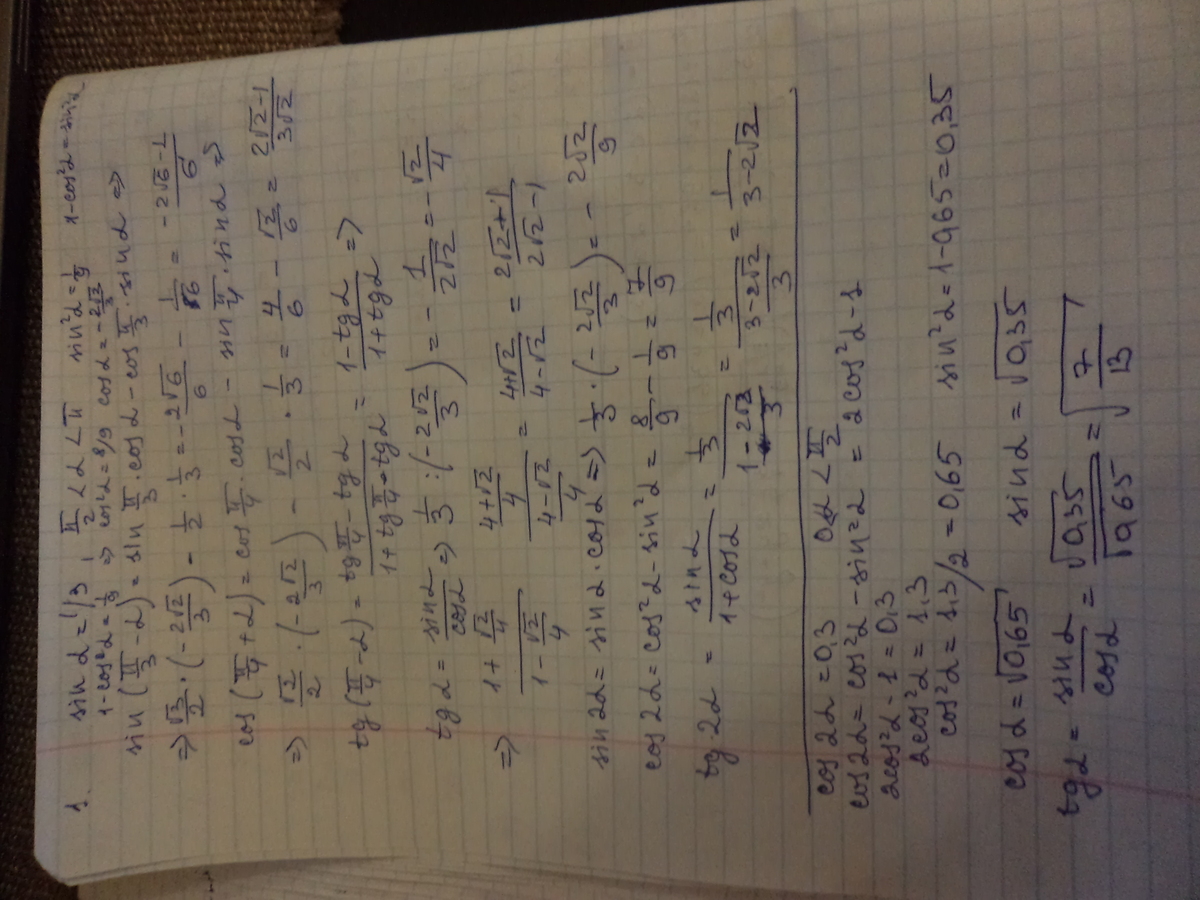 1. sin α = 1/3 ; π/2 < α < π sin²α = 1/9 1-cos²α = sin²α
1 - cos²α = 1/9 => cos²α = 8/9 cos α = -2√2/3
sin(π/3 - α) = sin π/3 · cos α - cos π/3 · sin α =>
=> √3/2 · (-2√2/3) - 1/2 · 1/3 = -2√6/6 - 1/6 = -2√6-1/6
cos(π/4 + α) = cos π/4 · cos α - sin π/4 · sin α =>
=> √2/2 · (-2√2/3) - √2/2 · 1/3 = 4/6 - √2/6 = 2√2-1/3√2
tg(π/4 - α) = tg π/4 - tg α / 1 + tg π/4 · tg α = 1 - tg α / 1 + tg α =>
tg α = sin α / cos α => 1/3 : (-2√2/3) = - 1/2√2 = - √2/4
=> 1 + √2/4 / 1 - √2/4 = 4+√2/4 / 4-√2/4 = 4+√2 / 4-√2 = 2√2+1 / 2√2-1
sin 2α = sin α · cos α => 1/3 · (-2√2/3) = - 2√2/9
cos 2α = cos²α - sin²α = 8/9 - 1/9 = 7/9
tg 2α = sin α / 1 + cos α = 1/3 / 1 - 2√2/3 = 1/3 / 3-2√2/3 = 1 / 3-2√2
cos 2α = 0,3 0<α<π/2
cos 2α = cos²α - sin²α = 2cos²α - 1
2cos²α - 1 = 0,3
2cos²α = 1.3
cos²α = 1.3/2 = 0,65 sin²α = 1 - 0,65 = 0,35
cos α = √0,65 sin α = √0,35
tg α = sin α / cos α = √0,35 / √0,65 = √7/13